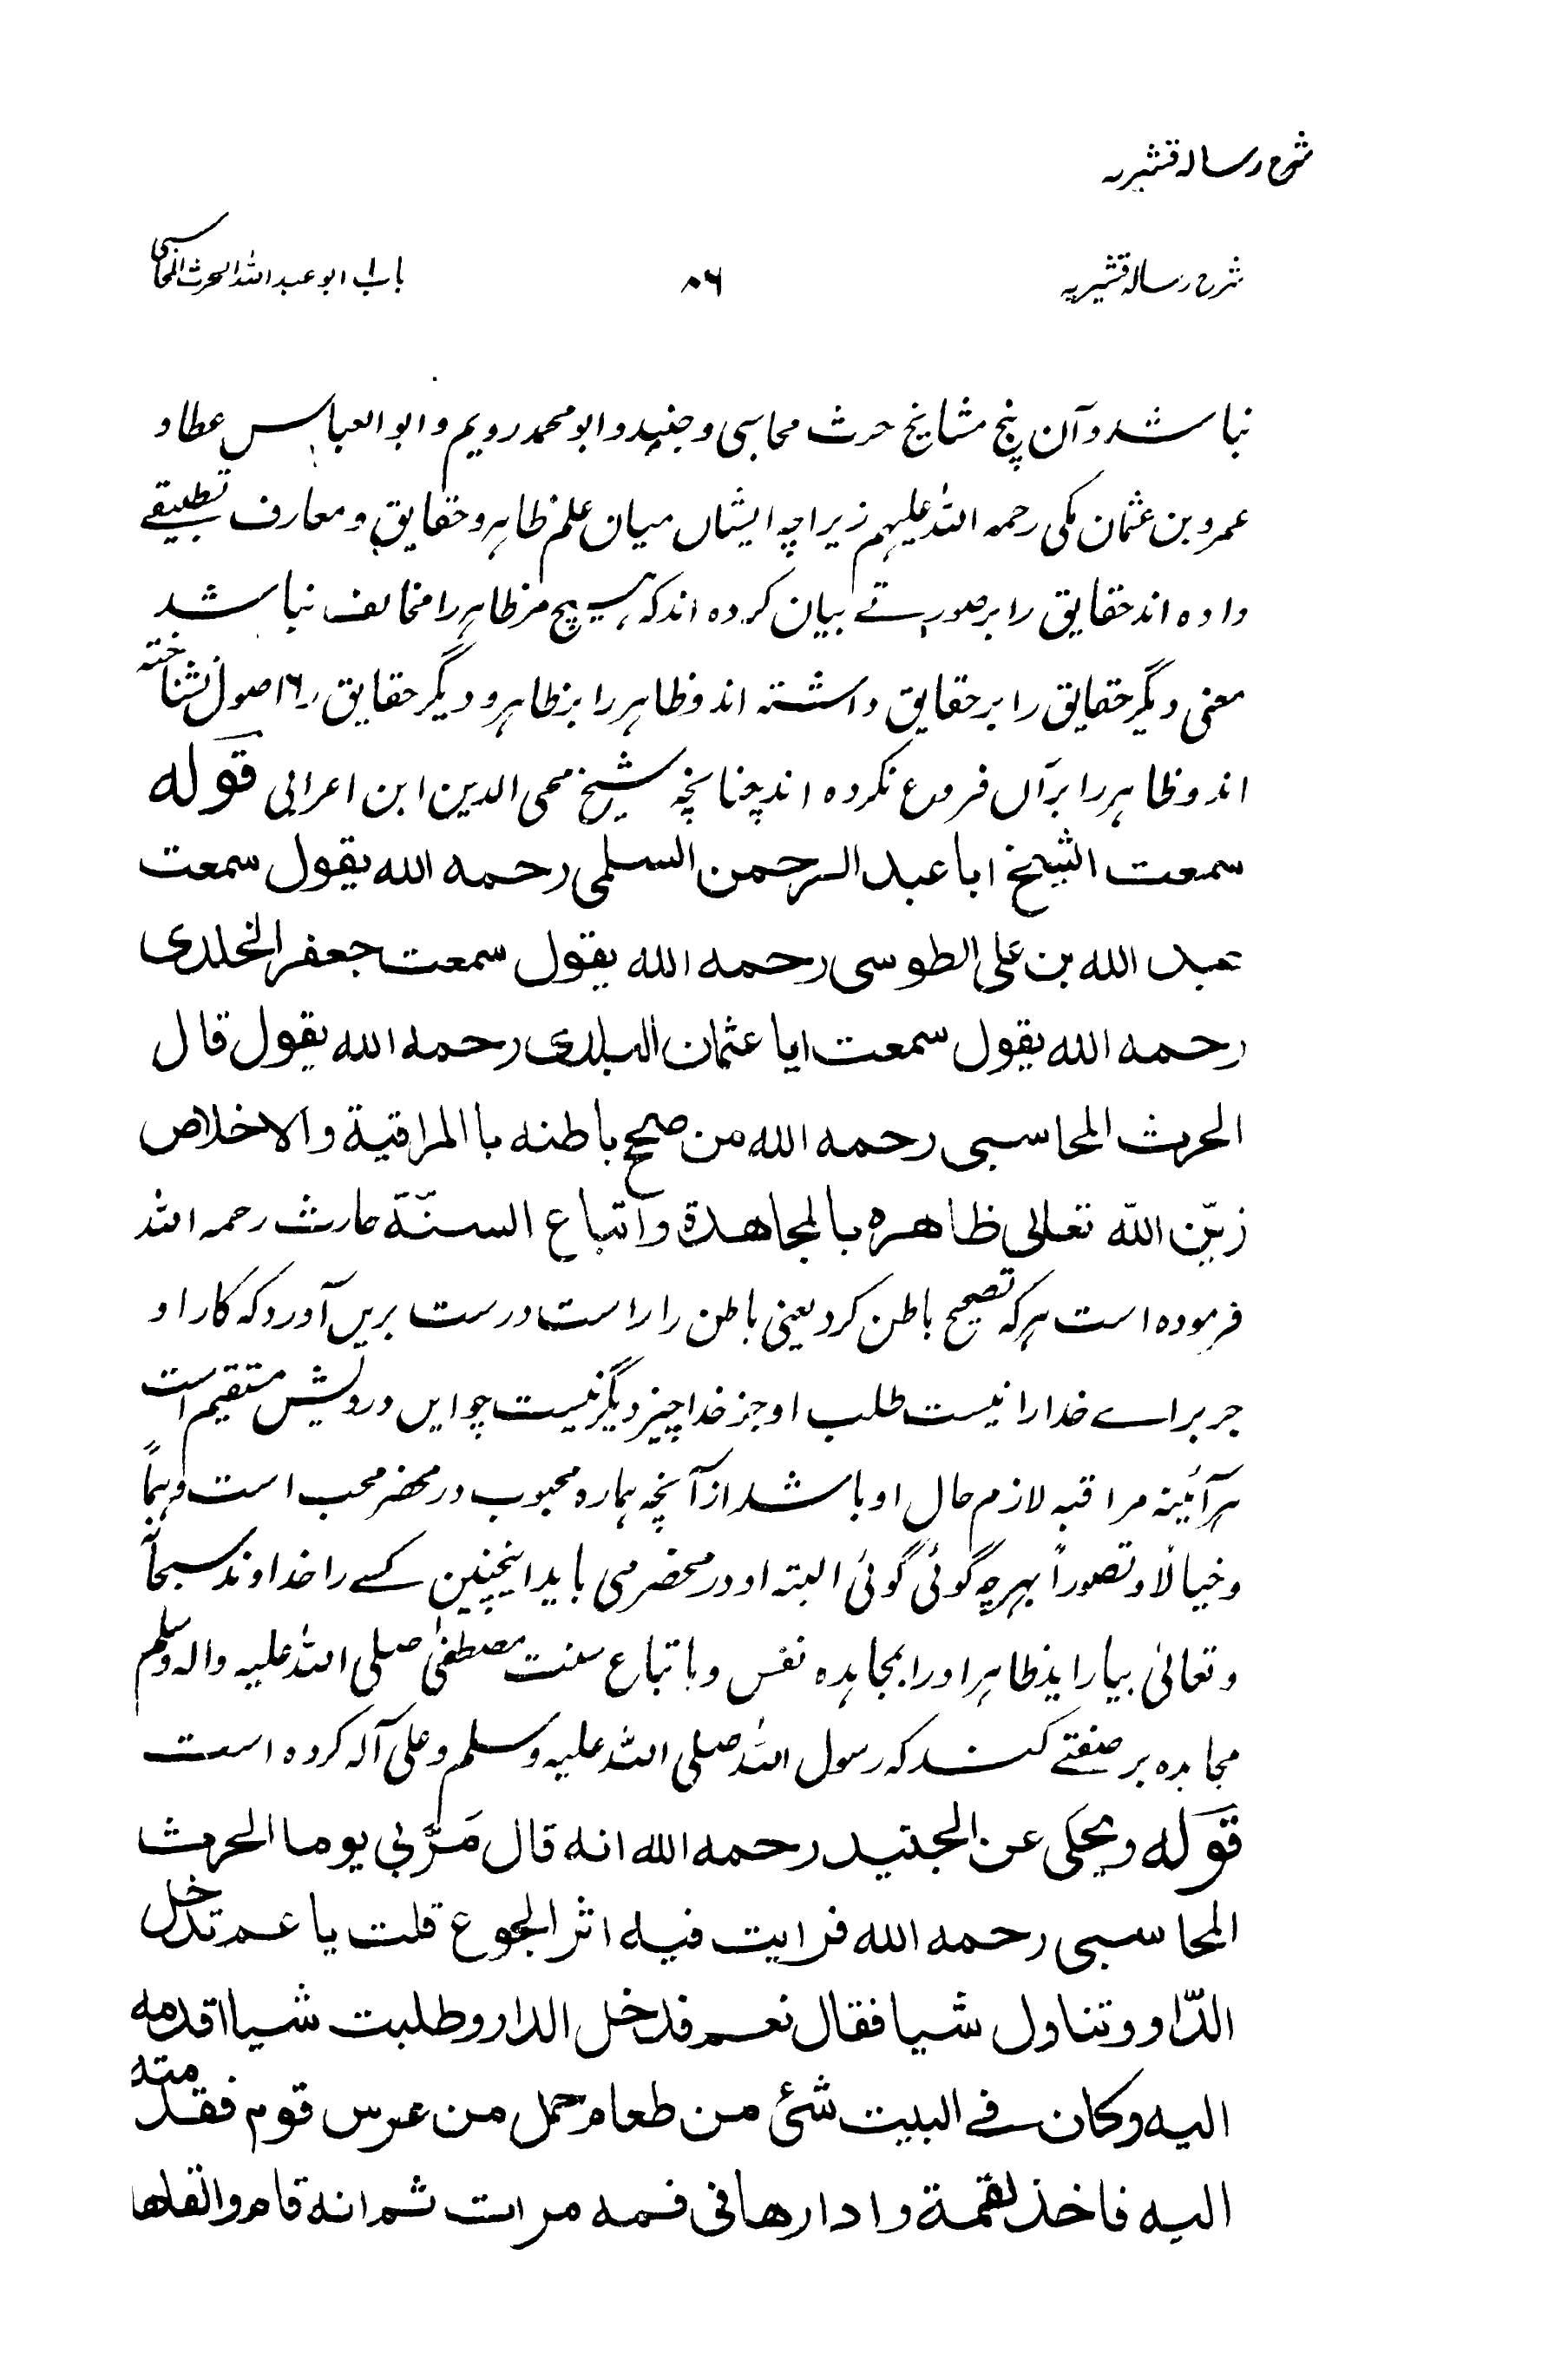 شرح رسالہ قشیریہ
شرح رسالہ قشیریہ ۸۶ باب ابو عبد اللہ الحرث المحاسبی
نباشد و آن پنج مشایخ حرث محاسبی و جنید و ابو محمد رویم و ابو العباس عطا و
عمرو بن عثمان مکی رحمہ اللہ علیہم زیراچہ ایشاں میان علم ظاہر و حقایق و معارف تطبیقے
داده اند حقایق را بر صورتے بیان کرده اند کہ ہیچ مر ظاہر را مخالف نباشد
معنی دیگر حقایق را بر حقایق داشتہ اند و ظاہر را بر ظاہر و دیگر حقایق را اصول نشناختہ
اند و ظاہر را بر آں فروع نکرده اند چنانچہ شیخ محی الدین ابن اعرابی قوله
سمعت الشیخ ابا عبد الرحمن السلمی رحمه الله یقول سمعت
عبد الله بن علی الطوسی رحمه الله یقول سمعت جعفر الخلدی
رحمه الله یقول سمعت ابا عثمان البلدی رحمه الله یقول قال
الحرث المحاسبی رحمه الله من صحح باطنه با المراقبة والاخلاص
زیّن اللّه تعالی ظاهره بالمجاهدة واتباع السنّة حارث رحمہ اللہ
فرموده است ہر کہ تصحیح باطن کرد یعنی باطن را راست و درست بریں آورد کہ کار او
جز براے خدا را نیست طلب او جز خدا چیز دیگر نیست چو ایں درویش مستقیم است
ہر آئینہ مراقبہ لازم حال او باشد از آنچہ ہماره محبوب در محضر محب است وہماً
و خیالاً و تصوراً بہر چہ گوئی گوئی البتہ او در محضر می باید اینچنین کسے را خداوند سبحانہٗ
و تعالیٰ بیاراید ظاہر او را بمجاہده نفس و باتباع سنت مصطفیٰ صلی اللہ علیہ والہ وسلم
مجاہده بر صفتے کند کہ رسول اللہ صلی اللہ علیہ وسلم و علی آلہ کرده است
قوله ویحکی عن الجنید رحمه الله انه قال مَرَّ بی یوما الحرث
المحاسبی رحمه الله فرایت فیه اثر الجوع قلت یا عم تدخل
الدّار وتناول شیا فقال نعم فدخل الدار وطلبت شیا اقدمه
الیه وکان فے البیت شئ من طعام حمل من عرس قوم فقدمته
الیه فاخذ لقمة وادارها فی فمه مرات ثم انه قام والقاها